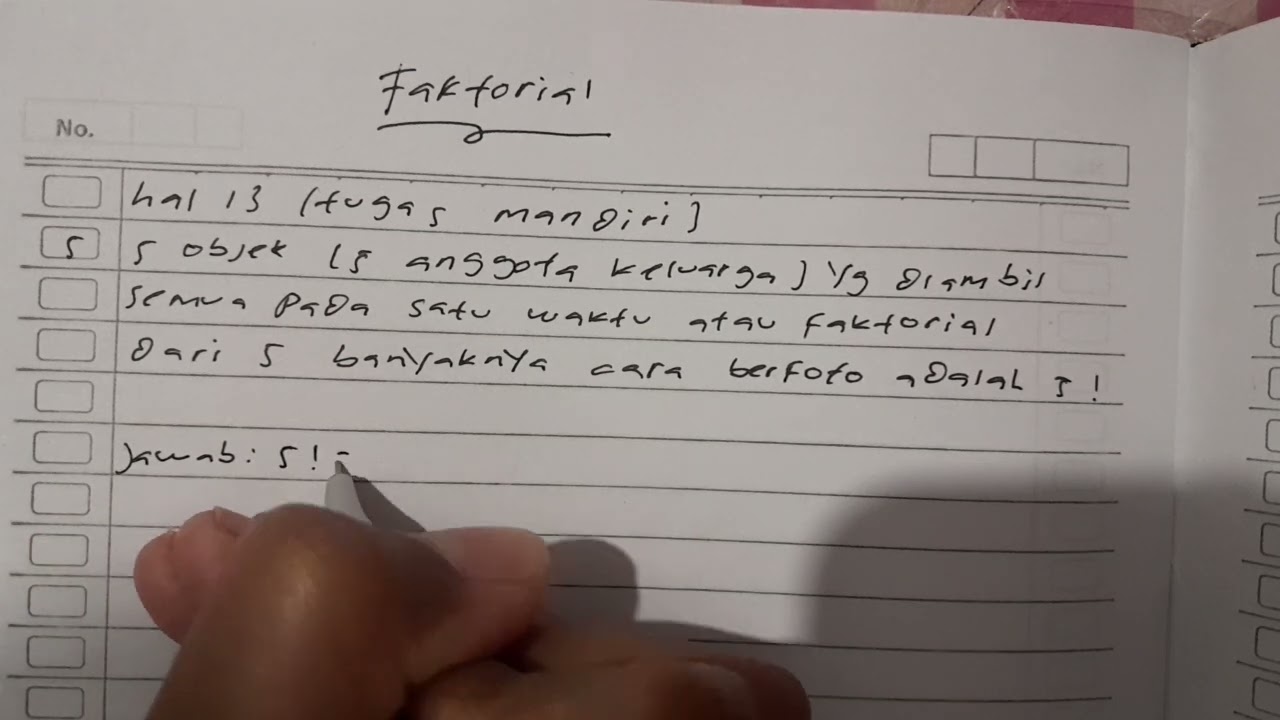 Faktorial
No.
hal 13 (tugas mandiri)
5 5 objek (5 anggota keluarga) yg diambil
semua pada satu waktu atau faktorial
dari 5 banyaknya cara berfoto adalah 5!
Jawab: 5! =